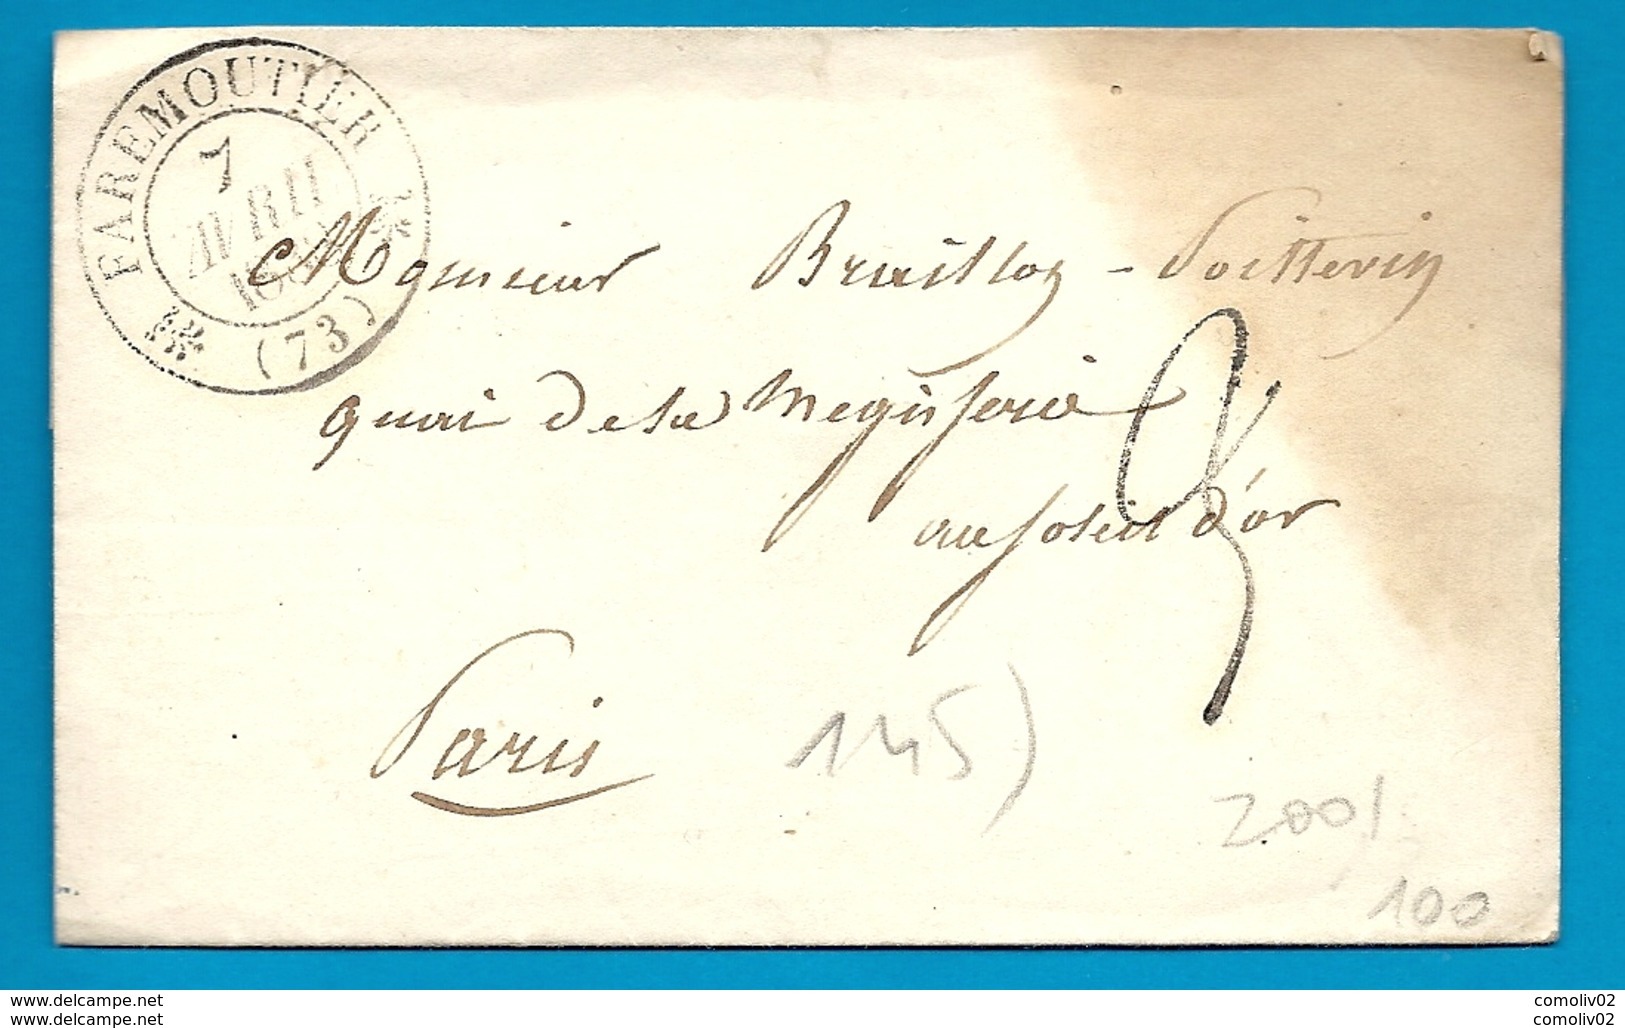 FAREMOUTIER
7
AVRIL
(73)
Monsieur Bruillon - Poittevin
quai de la Megisserie
au soleil d'or
Paris
145)
200/
100
www.delcampe.net
www.delcampe.net
comoliv02
comoliv02